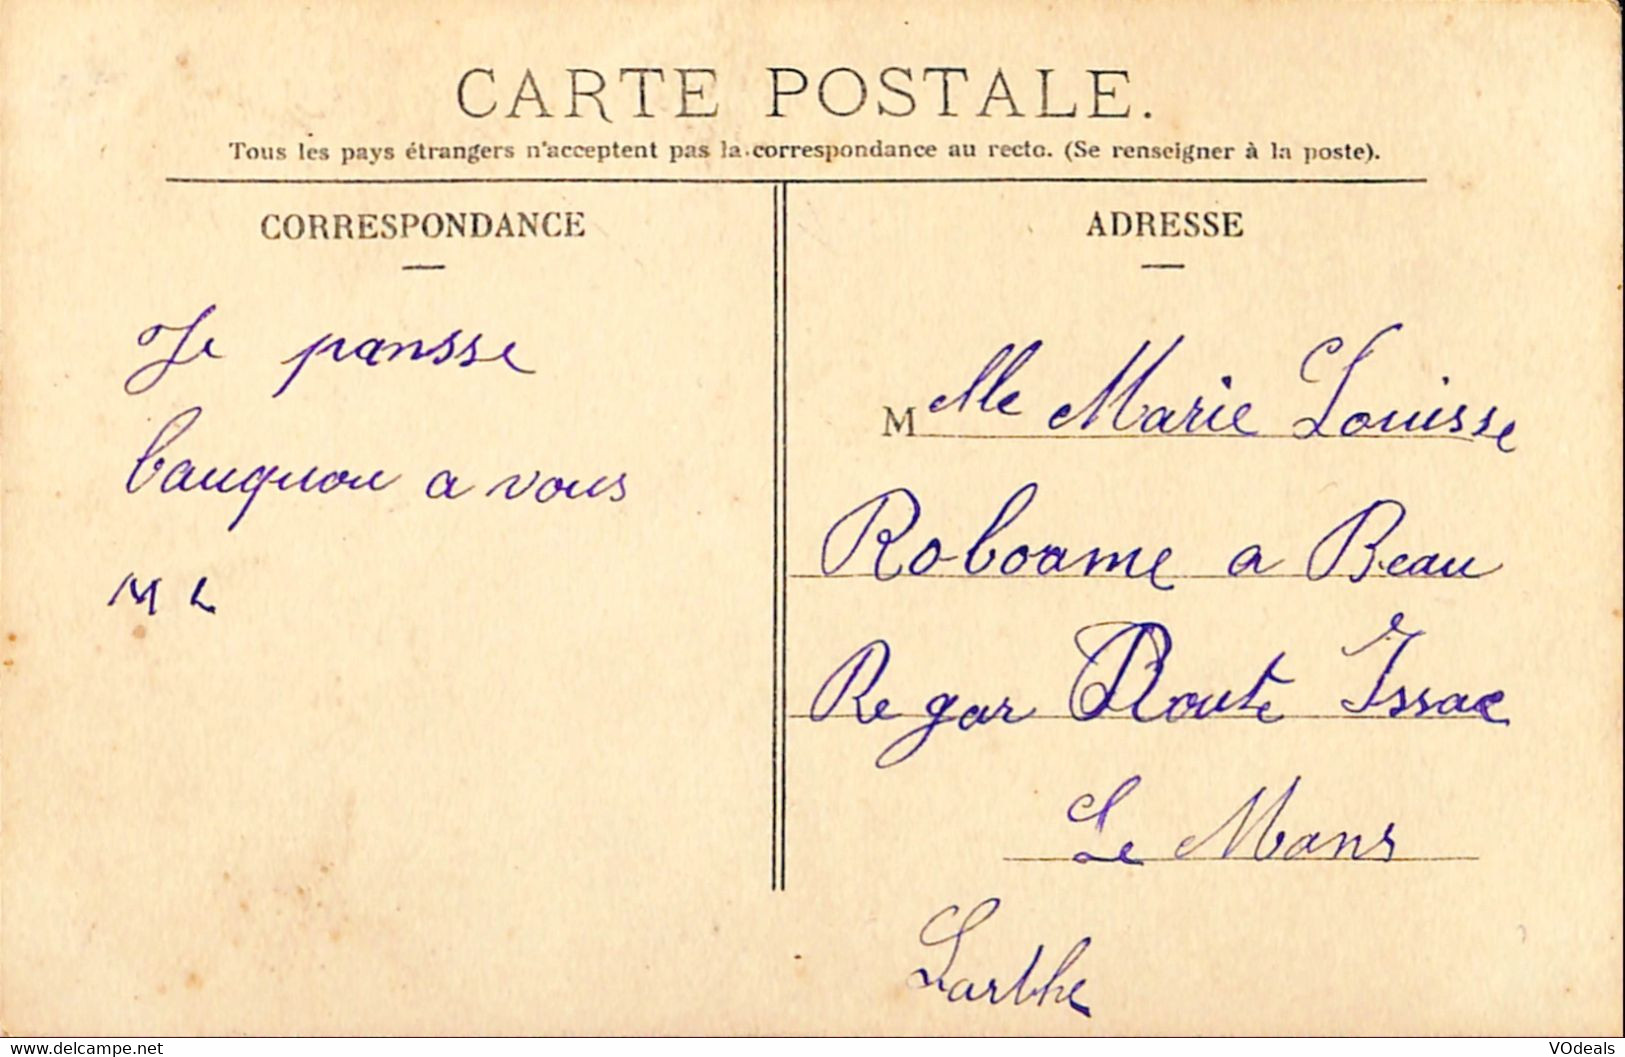 CARTE POSTALE.
Tous les pays étrangers n'acceptent pas la correspondance au recto. (Se renseigner à la poste).
CORRESPONDANCE
Je pansse
bauquou a vous
M L
ADRESSE
M elle Marie Louisse
Roboame a Beau
Regar Route Issac
Le Mans
Sarthe
www.delcampe.net
VOdeals